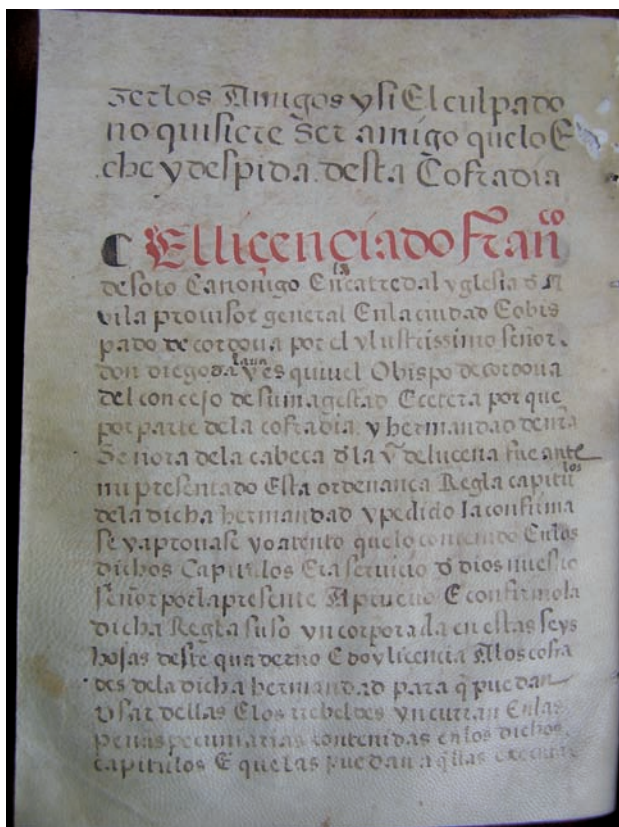 zerlos Amigos y si El culpado
no quisiere Ser amigo que lo E
che y despida. desta Cofradia
El licenciado franco
de soto Canonigo En la catredal yglesia d A
vila provisor general En la ciudad E obis
pado de cordova por el ylustrissimo señor.
don diego de alava y esquivel Obispo de cordova
del concejo de su magestad Ecetera por que
por parte de la cofradia. y hermandad de nra
Señora de la cabeca d la va de lucena fue ante
mi presentado Esta ordenanca Regla capitulos
de la dicha hermandad y pedido la confirma
se y aprovase yo atento que lo contenido En los
dichos Capitulos Era servicio d dios nuestro
señor por la presente Apruevo E confirmo la
dicha Regla suso yncorporada en estas seys
hojas deste quaderno E doy licencia A los cofra
des de la dicha hermandad para q puedan
Usar dellas E los rrebeldes yncurran En las
penas pecuniarias contenidas en los dichos.
capitulos E que las puedan a qllas executar